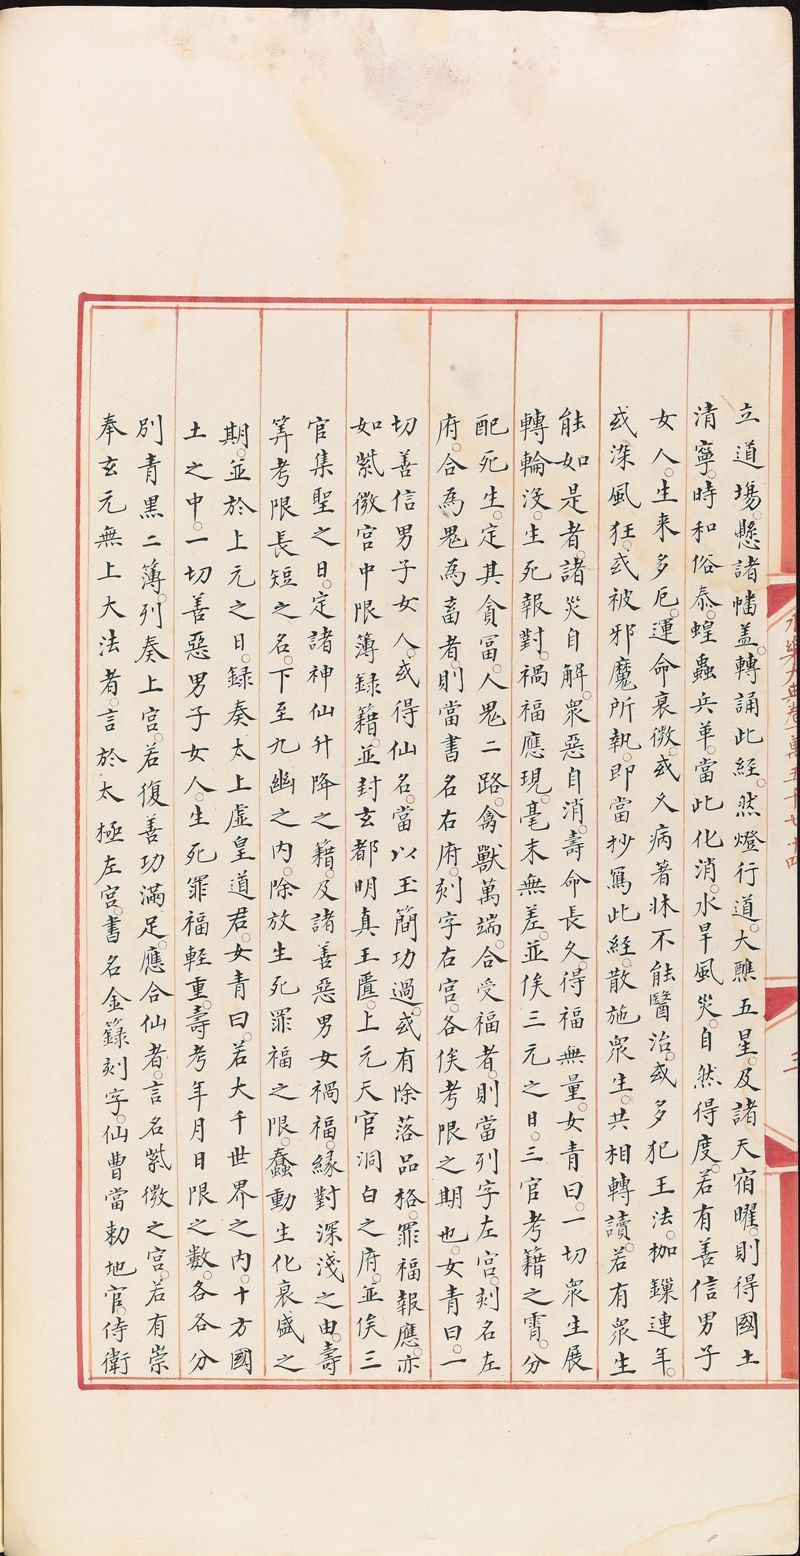 立道塲。懸諸幡盖。轉誦此經。然燈行道。大醮五星。及諸天宿曜。則得國土
清寧。時和俗泰。蝗蟲兵革。當此化消。水旱風災。自然得度。若有善信男子
女人。生来多厄。運命衰微。或久病著牀不能醫治。或多犯王法。枷鏁連年。
或染風狂。或被邪魔所執。即當抄寫此經。散施衆生。共相轉讀。若有衆生
能如是者。諸災自解。衆惡自消。壽命長久。得福無量。女青曰。一切衆生展
轉輪没。生死報對。禍福應現。毫末無差。並俟三元之日。三官考籍之霄。分
配死生。定其貪富。人鬼二路。禽獸萬端。合受福者。則當列字左宫。刻名左
府。合爲鬼爲畜者。則當書名右府。刻字右宫。各俟考限之期也。女青曰。一
切善信男子女人。或得仙名。當以玉簡功過。或有除落品格。罪福報應。亦
如紫微宫中限簿録籍。並封玄都明真玉匱。上元天官洞白之府。並俟三
官集聖之日。定諸神仙升降之籍。及諸善惡男女禍福。緣對深淺之由。壽
筭考限長短之名。下至九幽之内。除放生死罪福之限。蠢動生化衰盛之
期。並於上元之日。録奏太上虚皇道君。女青曰。若大千世界之内。十方國
土之中。一切善惡男子女人。生死罪福輕重。壽考年月日限之數。各各分
別青黑二簿。列奏上宫。若復善功滿足。應合仙者。言名紫微之宫。若有崇
奉玄元無上大法者。言於太極左宫。書名金籙刻字。仙曹當勑地官。侍衛
永樂大典卷一萬五千七十四